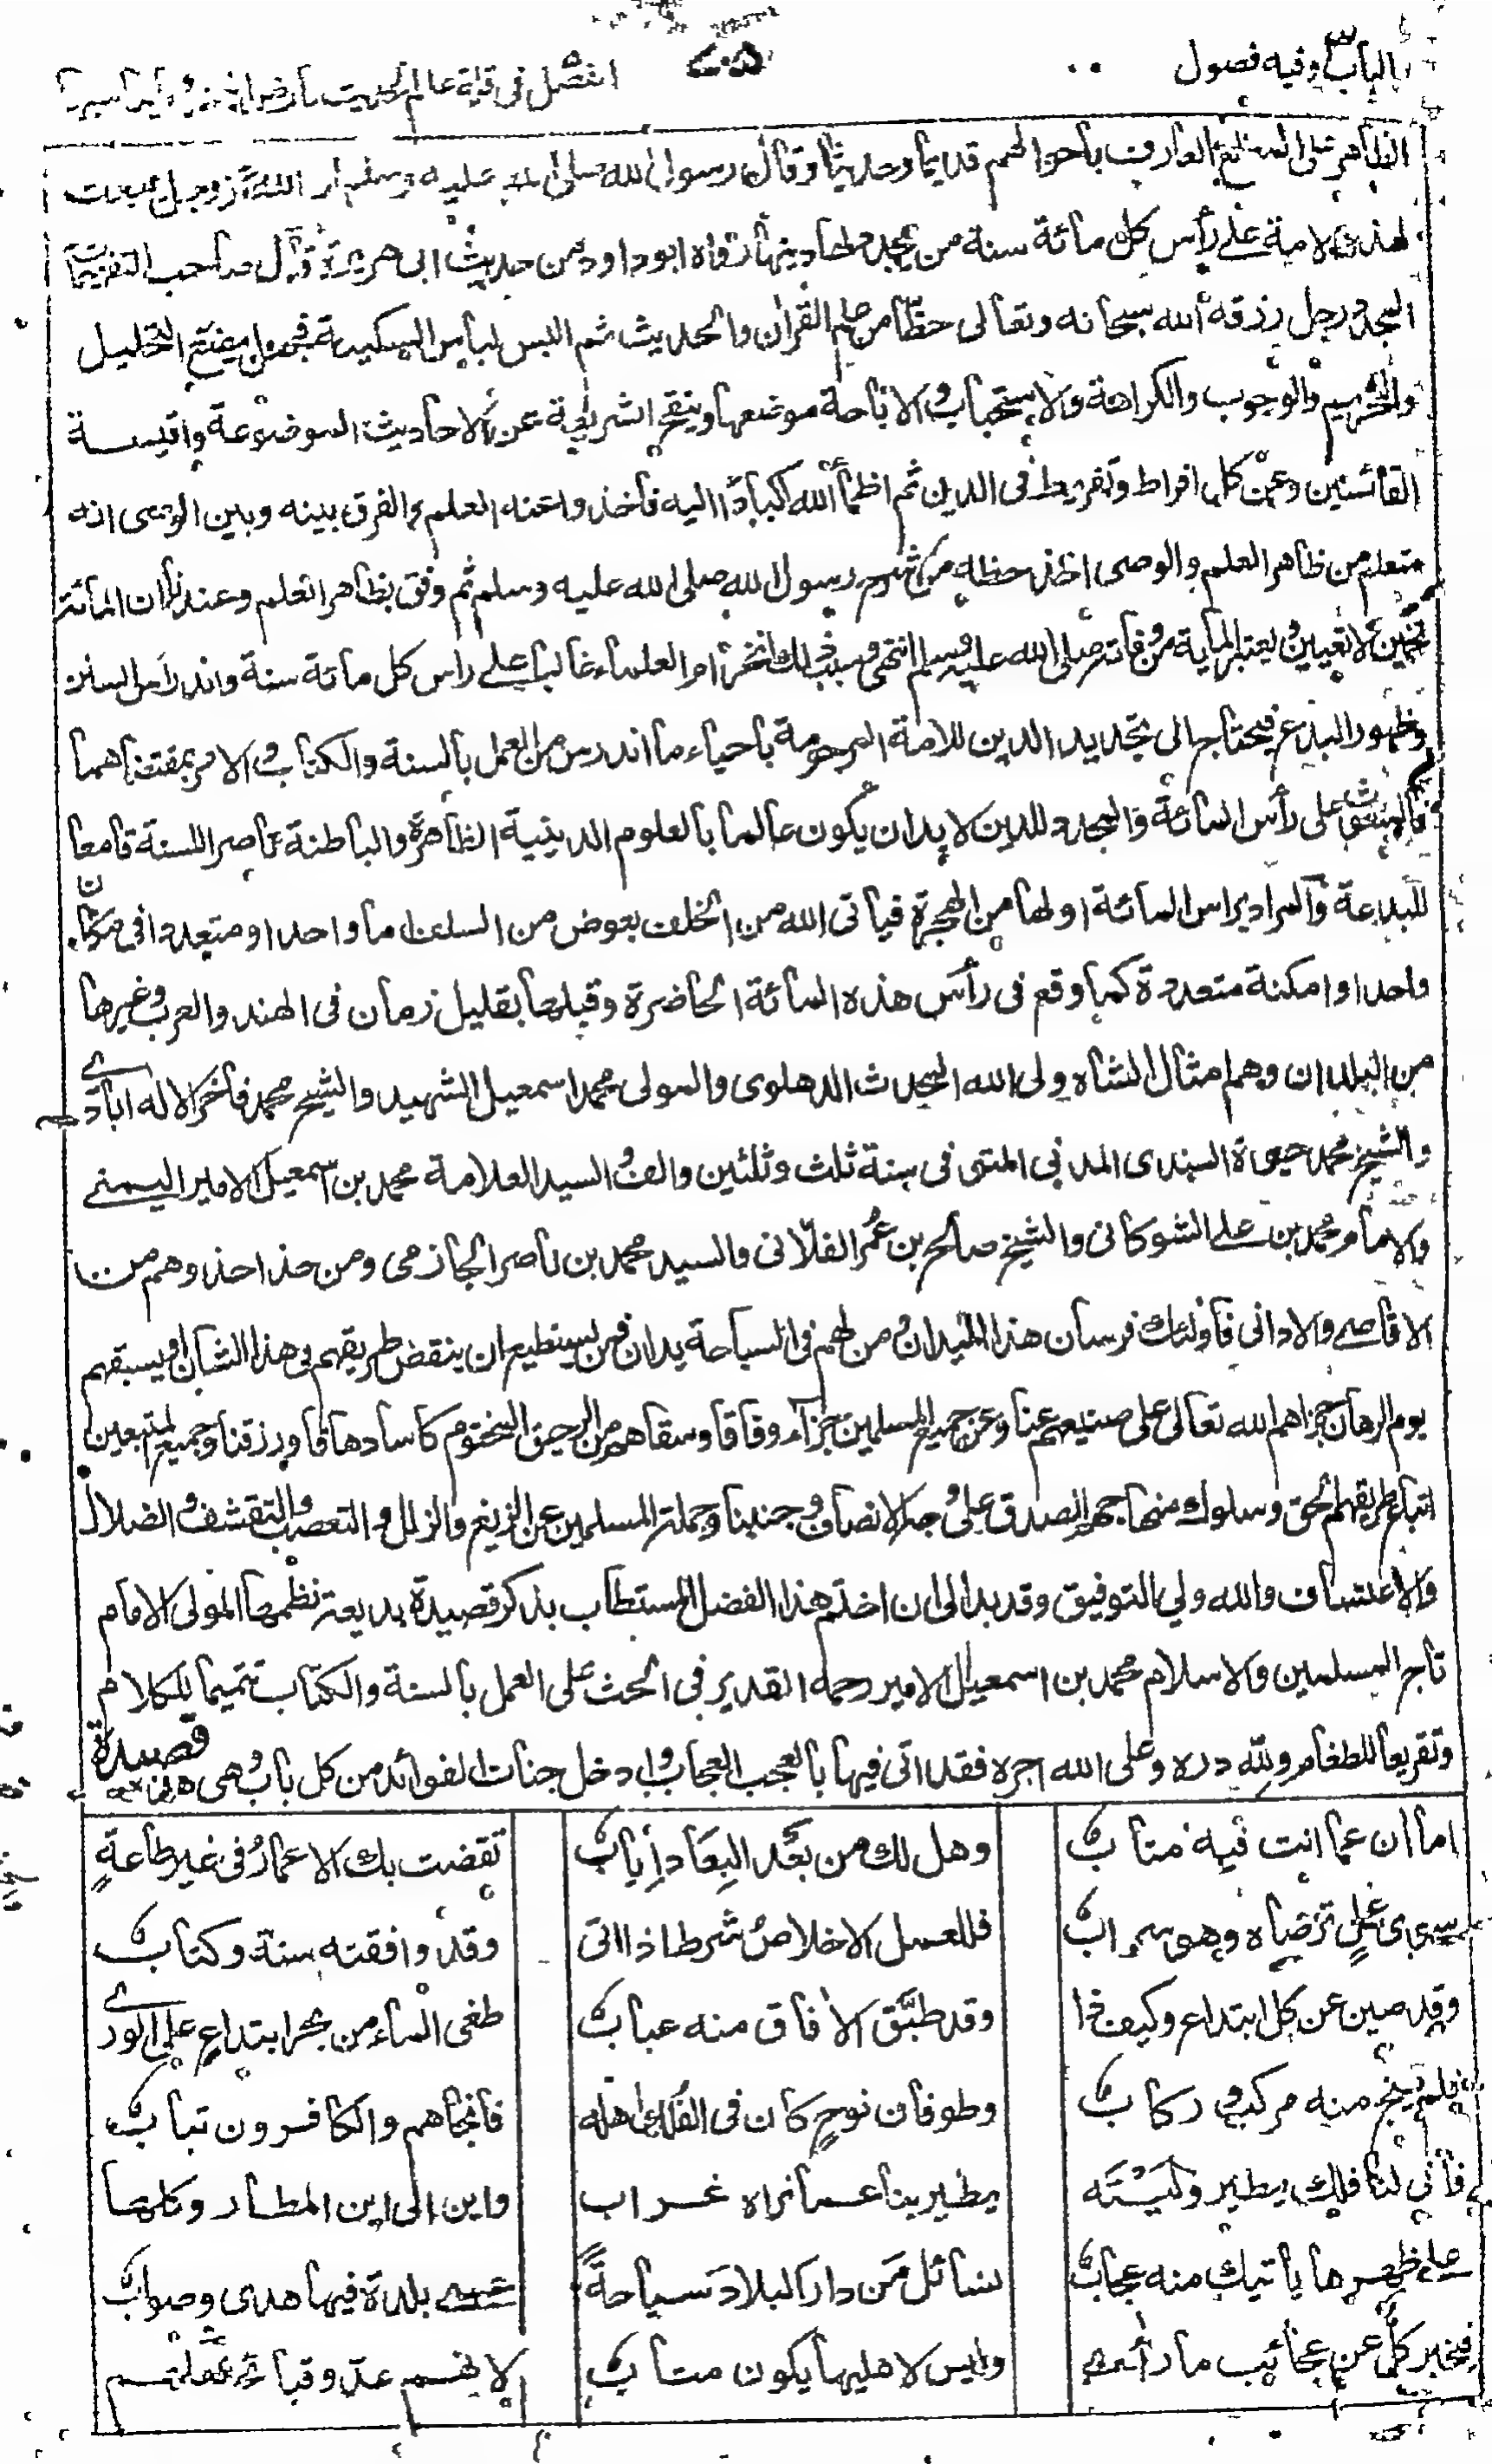 الباب ٣ وفيه فصول
الظاهر على العارف باحوالهم قديما وحديثا وقال رسول الله صلى الله عليه وسلم ان الله عز وجل يبعث
لهذه الامة على رأس كل مائة سنة من يجدد لها دينها رواه ابو داود من حديث ابى هريرة قال صاحب التفهيمات
المجدد رجل رزقه الله سبحانه وتعالى حظا من علم القران والحديث ثم البس لباس السكينة فجعل يفتح التحليل
والتحريم والوجوب والكراهة والاستحباب والاباحة موضعها وينقح الشريعة عن الاحاديث الموضوعة واقيسة
القائسين وعن كل افراط وتفريط فى الدين ثم اظمأ الله اكبادا اليه فاخذوا عنه العلم والفرق بينه وبين الوصى انه
متعلم من ظاهر العلم والوصى اخذ حظه من رسول الله صلى الله عليه وسلم ثم وفق بظاهر العلم وعندى ان المائة
تخمين لا تعيين ويعتبر المأية من وفاته صلى الله عليه وسلم انتهى وسبب ذلك انخرام العلماء غالبا على رأس كل مائة سنة واندراس السنن
وظهور البدع فيحتاج الى تجديد الدين للامة المرحومة باحياء ما اندرس من العمل بالسنة والكتاب والامر بمقتضاهما
فالمبعوث على رأس المائة والمجدد للدين لا بد ان يكون عالما بالعلوم الدينية الظاهرة والباطنة ناصرا للسنة قامعا
للبدعة والمراد براس المائة اولها من الهجرة فيأتى الله من الخلف بعوض من السلف اما واحدا او متعددا فى مكان
واحد او امكنة متعددة كما وقع فى رأس هذه المائة الحاضرة وقبلها بقليل زمان فى الهند والعرب وغيرها
من البلدان وهم امثال الشاه ولى الله المحدث الدهلوى والمولى محمد اسمعيل الشهيد والشيخ محمد فاخر الاله ابادى
والشيخ محمد حيوة السندى المدنى المتوفى فى سنة ثلث وثلثين والف والسيد العلامة محمد بن اسمعيل الامير اليمنى
والامام محمد بن على الشوكانى والشيخ صالح بن عمر الفلانى والسيد محمد بن ناصر الحازمى ومن حذا حذوهم من
الاقاصى والادانى فأولئك فرسان هذا الميدان ومن لهم فى السباحة يدان فمن يستطيع ان ينقض طريقهم فى هذا الشان او يسبقهم
يوم الرهان جزاهم الله تعالى على صنيعهم عنا وعن جميع المسلمين جزآء وفاقا وسقاهم من الرحيق المختوم كاسا دهاقا ورزقنا وجميع المتبعين
اتباع طريقهم الحق وسلوك منهاجهم الصدق على وجه الانصاف وجنبنا وجملة المسلمين عن الزيغ والزلل والتعصب والتقشف والضلال
والاعتساف والله ولي التوفيق وقد بدا لى ان اختم هذا الفصل المستطاب بذكر قصيدة بديعة نظمها المولى الامام
تاج المسلمين والاسلام محمد بن اسمعيل الامير رحمه القدير فى الحث على العمل بالسنة والكتاب تتميما للكلام
وتقريعا للطغام ولله دره وعلى الله اجره فقد اتى فيها بالعجب العجاب وادخل جنات الفوائد من كل باب وهى هذه قصيدة
اما ان عما انت فيه متاب وهل لك من بعد البعاد اياب تقضت بك الاعمار فى غير طاعة
سوى عمل ترضاه وهو سراب فللعمل الاخلاص شرط اذا اتى وقد وافقته سنة وكتاب
وقد صين عن كل ابتداع وكيف ذا وقد طبق الافاق منه عباب طغى الماء من بحر ابتداع على الورى
فلم ينج منه مركب وركاب وطوفان نوح كان فى الفلك اهله فانجاهم والكافرون تباب
فأنى لنا فلك يطير وليته يطير بنا عما نراه غراب واين الى اين المطار وكلها
على ظهرها يأتيك منه عجاب نسائل من دار البلاد سياحة عسى بلدة فيها هدى وصواب
فيخبر كل عن عجائب ما رأى وليس لاهليها يكون متاب لانهم عدوا قبائح فعلهم